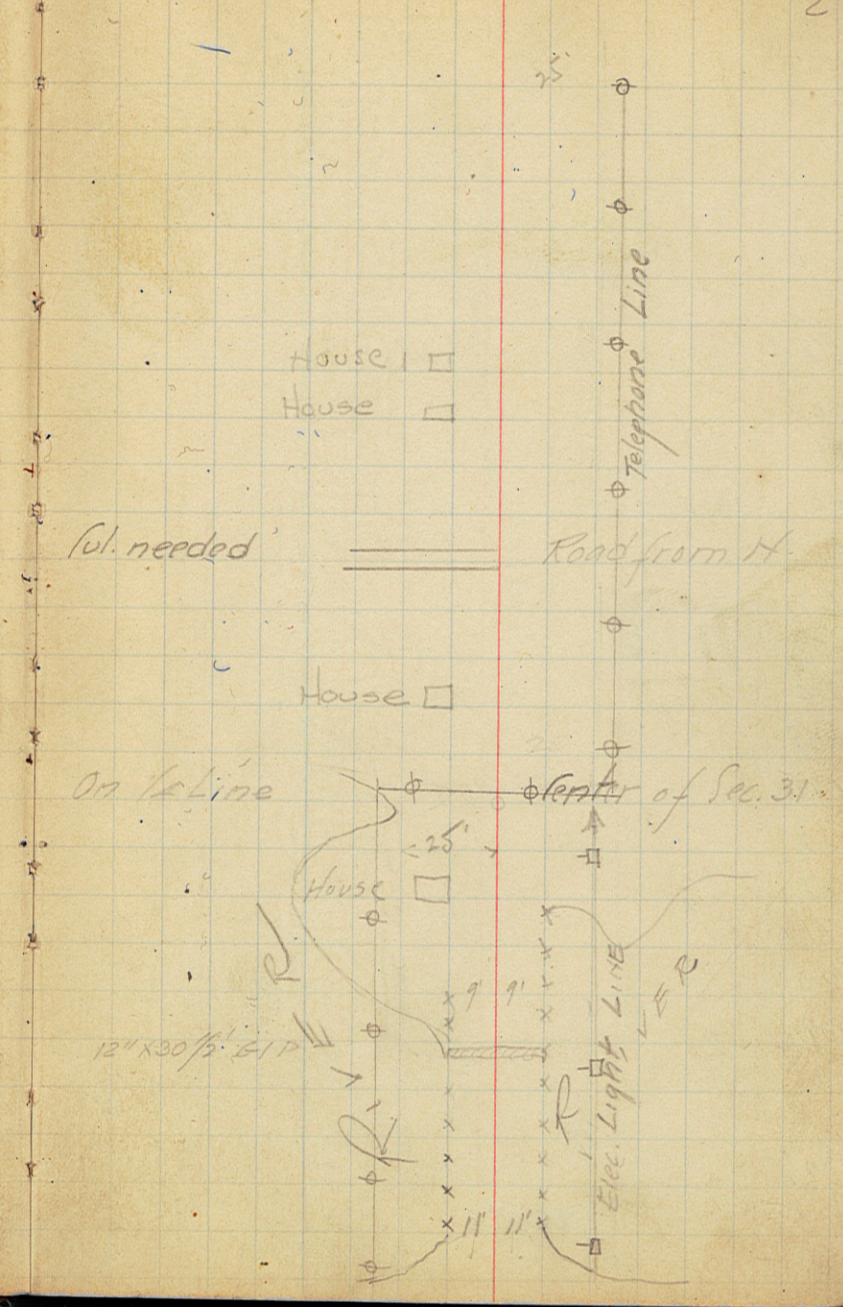 25'
Telephone Line
House
House
Cul. needed
Road from N.
House
On ¼ Line
Center of Sec. 31
25'
House
R
R
9' 9'
12" X 30½' G.I.P.
R
R
Elec. Light LINE
11' 11'